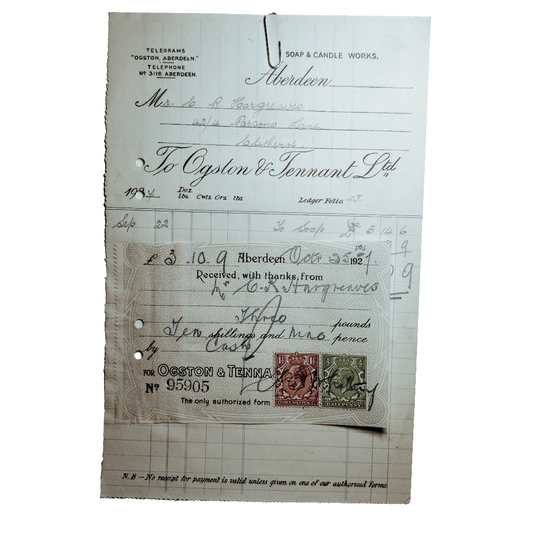 TELEGRAMS
"OGSTON, ABERDEEN."
TELEPHONE
Nº 3116 ABERDEEN.
SOAP & CANDLE WORKS,
Aberdeen
C R Hargreaves
Parsons Lane
Clitheroe
To Ogston & Tennant Ltd
Doz. lbs. Cwts Qrs lbs.
Ledger Folio.
Sep 22 To Soap 3 14 6
9
9
£3.10.9 Aberdeen Oct 25th 1927.
Received, with thanks, from
Mr C. R. Hargreaves
Three pounds
Ten shillings and Nine pence
by Cash
FOR OGSTON & TENNA
Nº 95905
The only authorized form
N.B – No receipt for payment is valid unless given on one of our authorised forms.